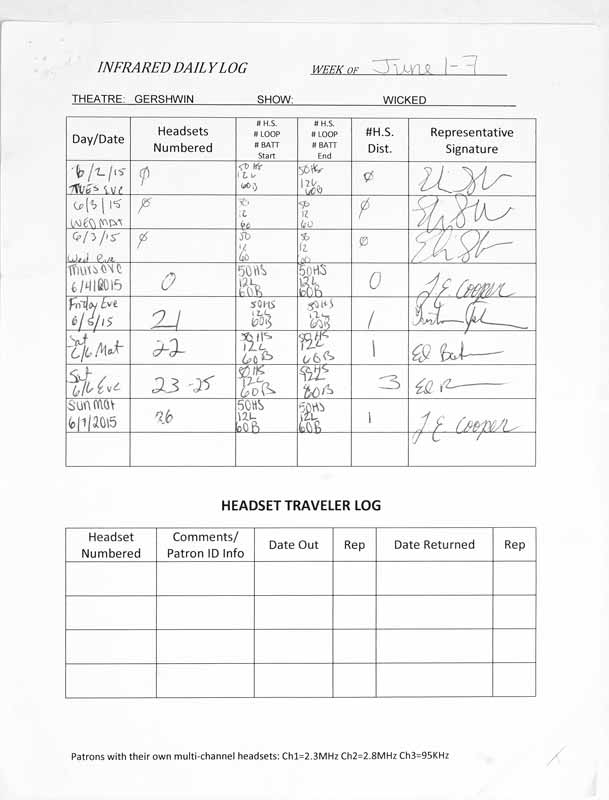 INFRARED DAILY LOG WEEK OF June 1-7
THEATRE: GERSHWIN SHOW: WICKED
Day/Date Headsets Numbered # H.S. # LOOP # BATT Start # H.S. # LOOP # BATT End #H.S. Dist. Representative Signature
6/2/15 TUES EVE ∅ 50 HS 12L 60B 50HS 12L 60B ∅
6/3/15 WED MAT ∅ 50 12 60 50 12 60 ∅
6/3/15 Wed Eve ∅ 50 12 60 50 12 60 ∅
Thurs eve 6/4/2015 0 50HS 12L 60B 50HS 12L 60B 0 J.E. Cooper
Friday Eve 6/5/15 21 50HS 12L 60B 50HS 12L 60B 1
Sat 6/6 Mat 22 50 HS 12L 60B 50HS 12L 60B 1 Ed
Sat 6/6 Eve 23-25 50HS 12L 60B 50HS 12L 60B 3 Ed
Sun Mat 6/7/2015 26 50HS 12L 60B 50HS 12L 60B 1 J.E. Cooper
HEADSET TRAVELER LOG
Headset Numbered Comments/ Patron ID Info Date Out Rep Date Returned Rep
Patrons with their own multi-channel headsets: Ch1=2.3MHz Ch2=2.8MHz Ch3=95KHz